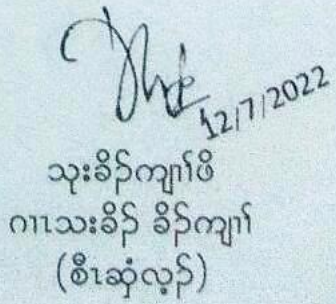 12/7/2022
သုးခိၣ်ကျၢၢ်ဖိ
ဂၢၤသးခိၣ် ခိၣ်ကျၢၢ်
(စီၤဆှံလ့ၣ်)